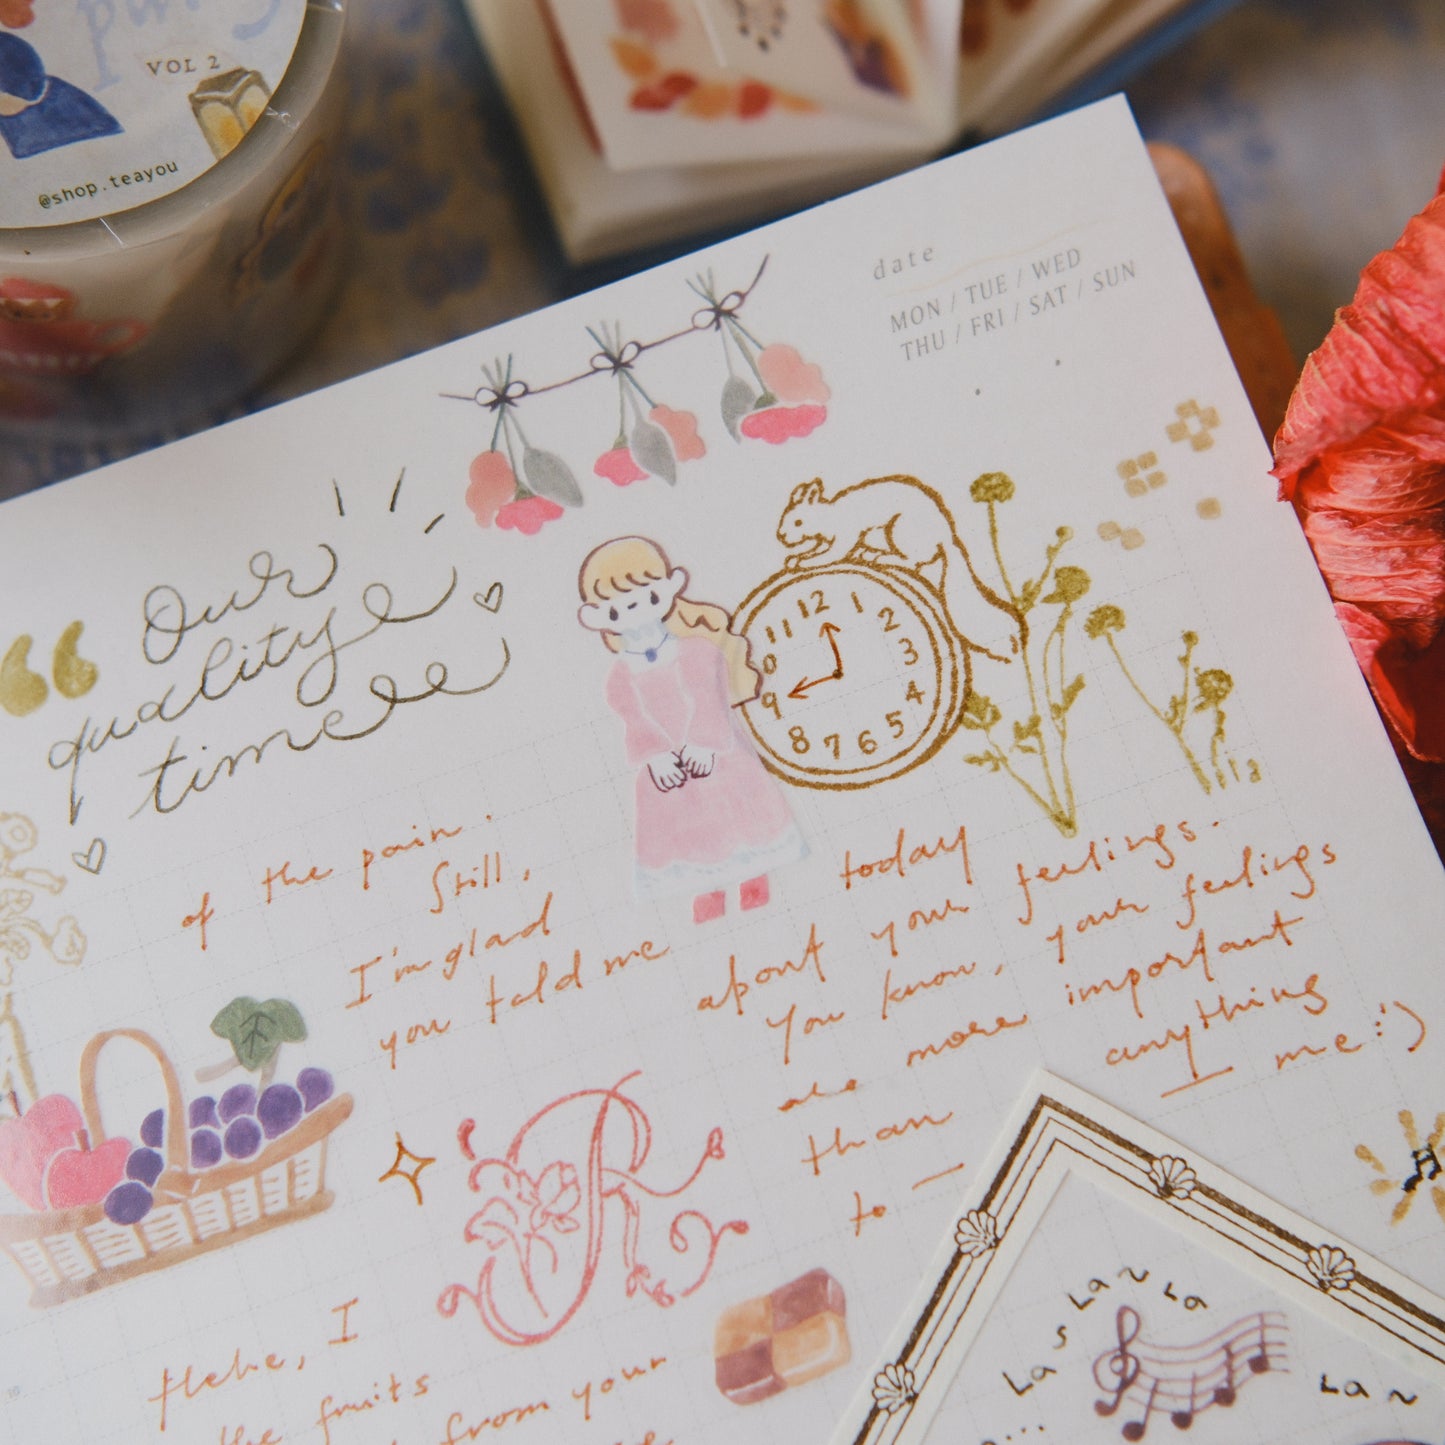 VOL 2
@shop.teayou
date
MON / TUE / WED
THU / FRI / SAT / SUN
“ Our
quality
time
12 1 2 3 4 5 6 7 8 9 0 11
of the pain.
Still,
I'm glad
you told me
today
about your feelings.
You know, your feelings
are more important
than anything
to — me :)
R
Hehe, I
the fruits
from your
La s La ~ La
La ~
...
10